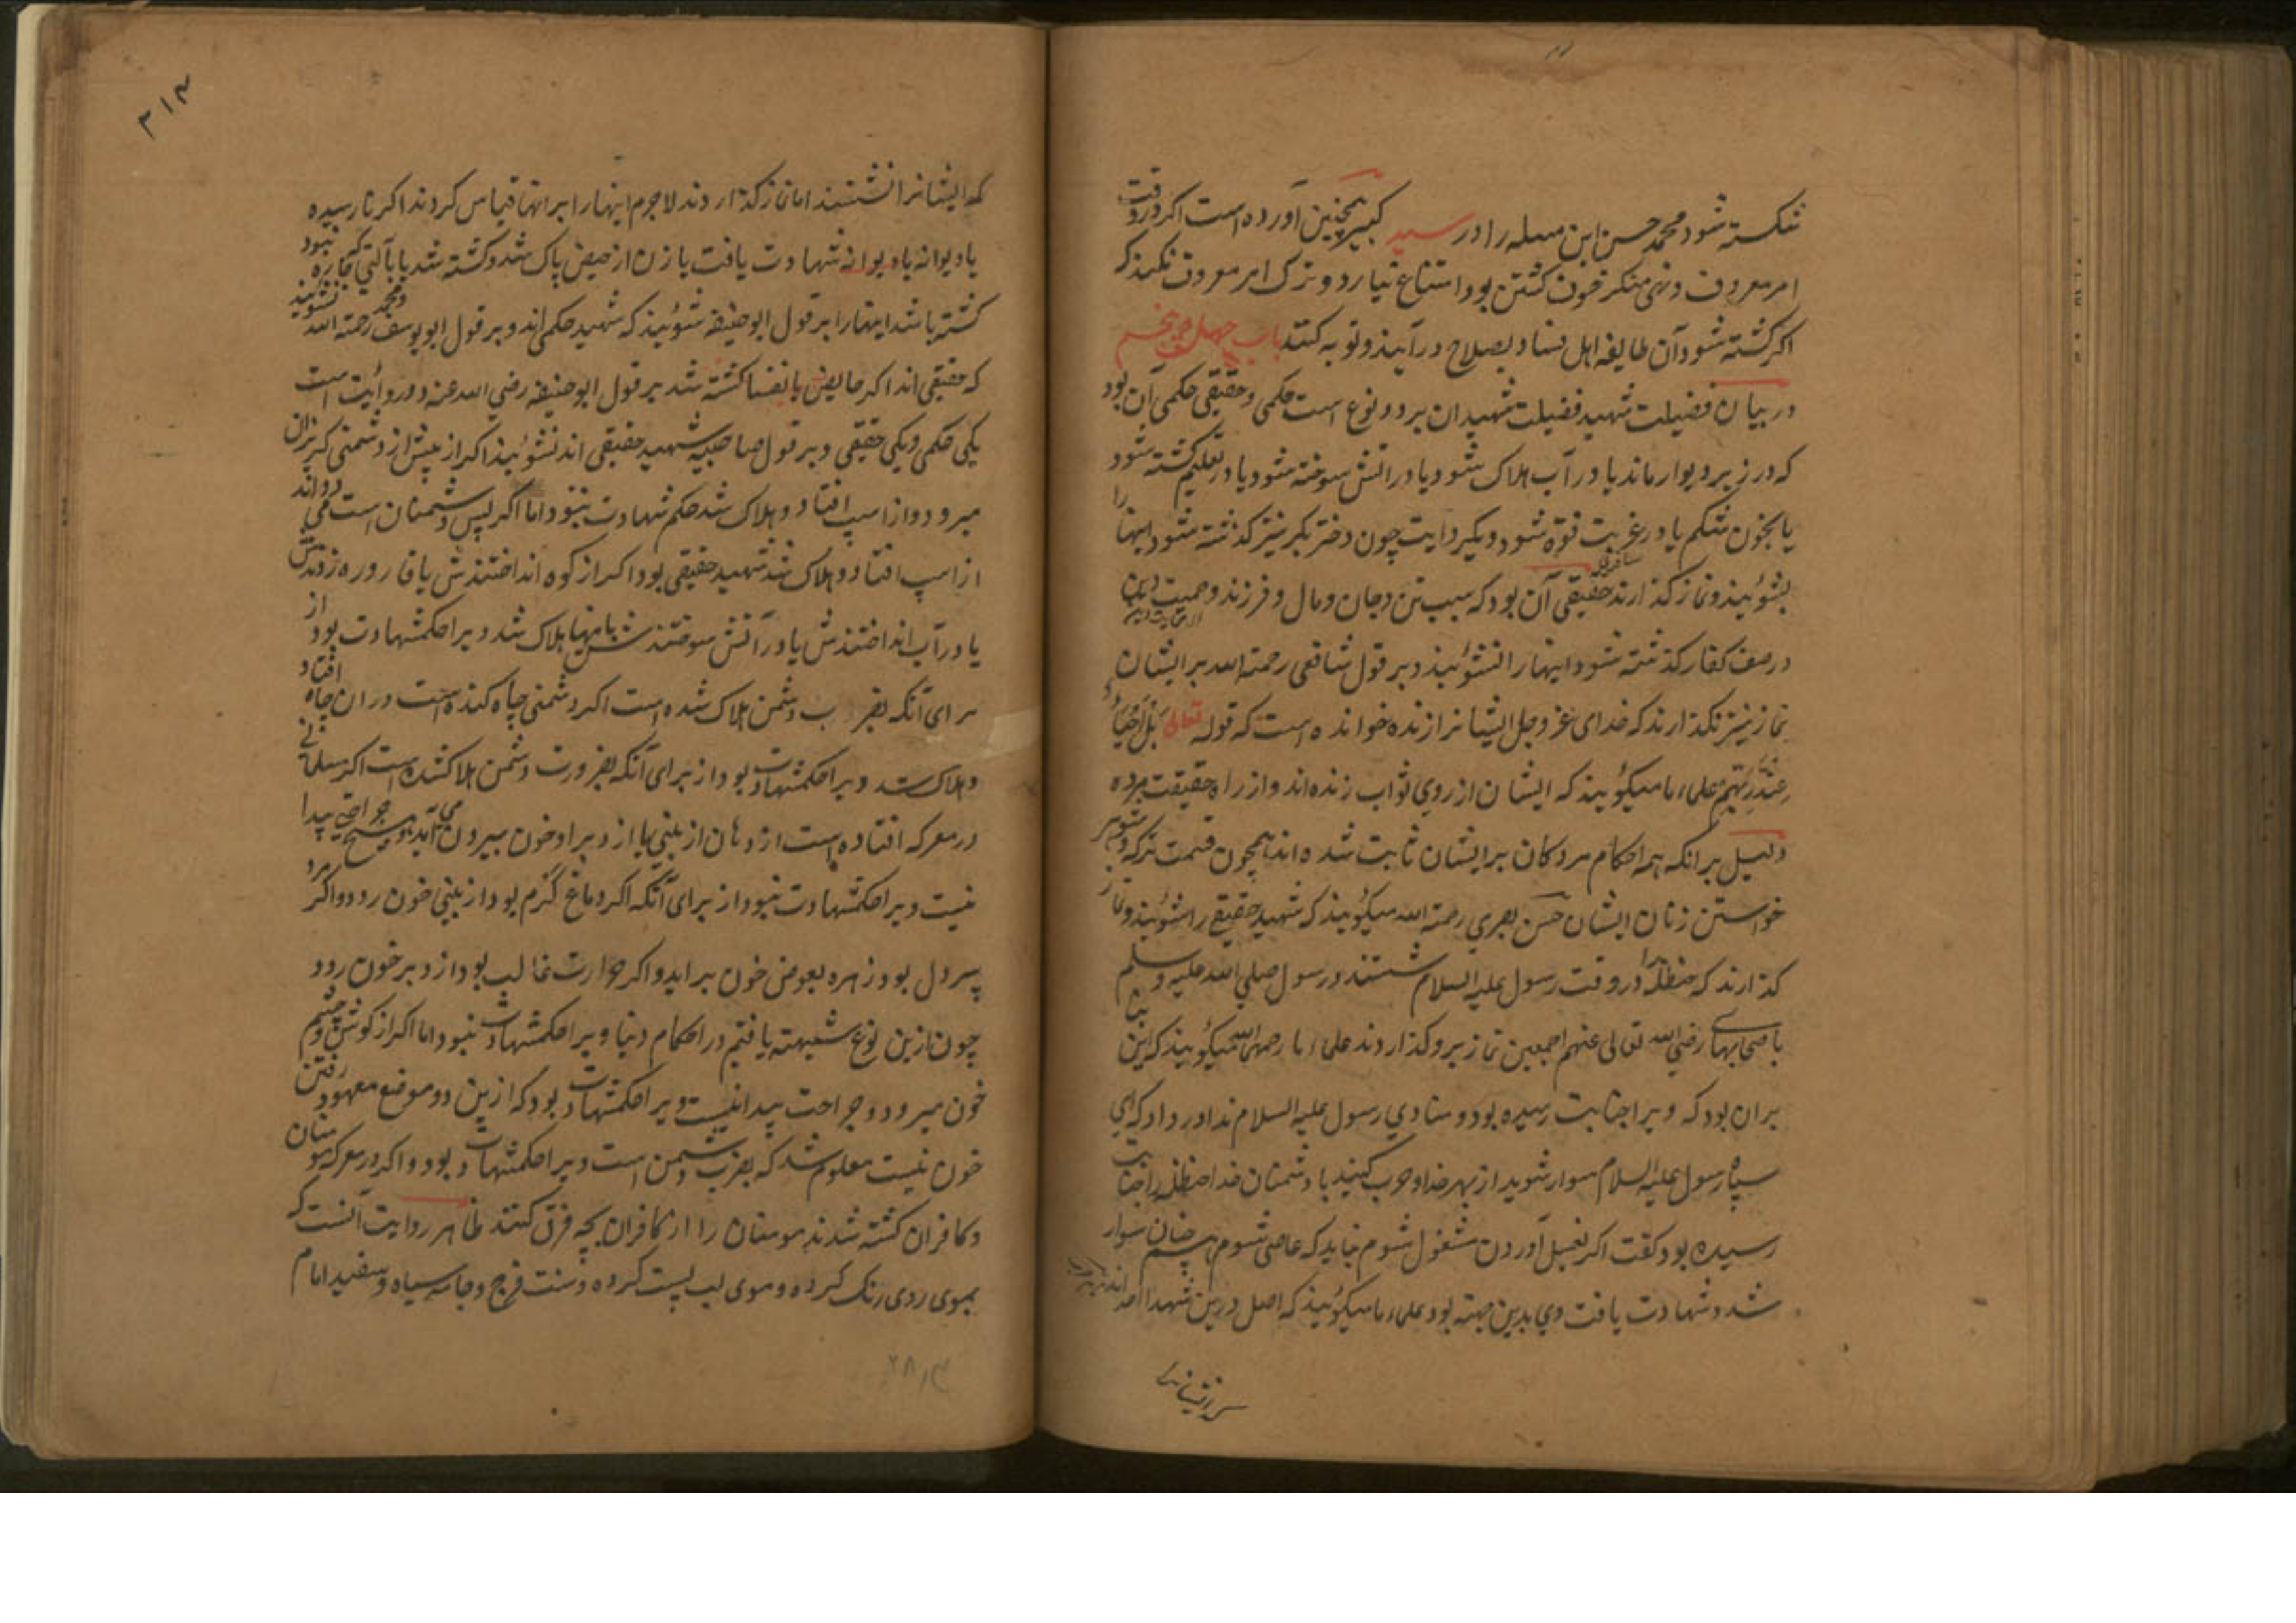 شکسته شود محمد حسن این مسله را در سیر کبیر همچنین آورده است اکر در وقت
امر معروف و نهی منکر خوف کشتن بود امتناع نیارد و ترک امر معروف نکند که
اکر کشته شود آن طایفه اهل فساد بصلاح درآیند و توبه کنند باب چهل و پنجم
در بیان فضیلت شهید فضیلت شهیدان بر دو نوع است حکمی و حقیقی حکمی آن بود
که در زیر دیوار ماند یا در آب هلاک شود یا در آتش سوخته شود یا در تعلیم کشته شود
یا بخون شکم یا در غربت فوة شود و یکی روایت چون دختر بکر نیز کذشته شود اینها را
بشوئیند و نماز کذارند حقیقی آن بود که سبب تن و جان و مال و فرزند و حمیت دین
در صف کفار کذشته شود اینها را نشوئیند و بر قول شافعی رحمة الله بر ایشان
نماز نیز نکذارند که خدای عز و جل ایشانرا زنده خوانده است که قوله تعالی بَلْ اَحْیَاءٌ
عِنْدَ رَبِّهِمْ علماء ما میکوئیند که ایشان از روی ثواب زنده اند و از راه حقیقت مرده
دلیل بر انکه همه احکام مردکان بر ایشان ثابت شده اند همچون قسمت ترکه و شوهر
خواستن زنان ایشان حسن بصری رحمة الله میکوئیند که شهید حقیقی را شوئیند و نماز
کذارند که حنظله را در وقت رسول علیه السلام شستند و رسول صلی الله علیه و سلم
با صحابهاء رضی الله تعالی عنهم اجمعین نماز برو کذاردند علماء ما رحمهم الله میکوئیند که این بنا
بران بود که ویرا جنابت رسیده بود و منادی رسول علیه السلام ندا در داد که ای
سپاه رسول علیه السلام سوار شوید از بهر خدا و حرب کنید با دشمنان خدا حنظله را جنابت
رسیده بود کفت اکر بغسل آوردن مشغول شوم نباید که عاصی شوم همچنان سوار
شد و شهادت یافت وی بدین جهته بود علماء ما میکوئیند که اصل درین شهدا احد اند
که ایشانرا نشستند اما نماز کذاردند لاجرم اینها را بر انها قیاس کردند اکر نارسیده
یا دیوانه شهادت یافت یا زن از حیض پاک شد و کشته شد یا بآلتی که خاره نبود
کشته باشد اینها را بر قول ابوحنیفه شوئیند که شهید حکمی اند و بر قول ابویوسف و محمد رحمة الله نشوئیند
که حقیقی اند اکر حایض یا نفسا کشته شد بر قول ابوحنیفه رضی الله عنه دو روایت است
یکی حکمی و یکی حقیقی و بر قول صاحبیه شهید حقیقی اند نشوئیند اکر از پیش از دشمنی کریزان
میرود و از اسپ افتاد و هلاک شد حکم شهادت نبود اما اکر پس دشمنان است می دواند
از اسپ افتاد و هلاک شد شهید حقیقی بود اکر از کوه انداختندش یا قاروره زدندش
یا در آب انداختندش یا در آتش سوختندش بانها هلاک شد ویرا حکم شهادت بود از
برای آنکه بضرب دشمن هلاک شده است اکر دشمنی چاه کنده است در ان چاه افتاد
و هلاک شد ویرا حکم شهادت بود از برای آنکه بضرورت دشمن هلاک شده است اکر مسلمانی
در معرکه افتاده است از دهان از بینی یا از دبر او خون بیرون می آید و هیچ جراحتی پیدا
نیست ویرا حکم شهادت نبود از برای آنکه اکر دماغ کرم بود از بینی خون رود و اکر مرد
پر دل بود زهره بعوض خون براید و اکر حرارت غالب بود از دبر خون رود
چون ازین نوع شبهته یافتیم در احکام دنیا ویرا حکم شهادت نبود اما اکر از کوش و چشم
خون میرود و جراحت پیدا نیست ویرا حکم شهادت بود که ازین دو موضع معهود رفتن
خون نیست معلوم شد که بضرب دشمن است ویرا حکم شهادت بود و اکر در معرکه مومنان
و کافران کشته شدند مومنان را از کافران بچه فرق کنند ظاهر روایت آنست که
بموی ردی رنک کرده و موی لب پست کرده و سنت فرج و جامه سیاه و سفید امام